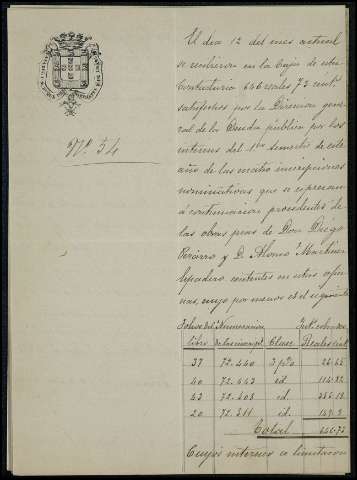 Nº 54
El dia 12 del mes actual
se recibieron en la Caja de esta
Contaduria 646 reales 73 cents
satisfechos por la Direccion gene
ral de la Deuda publica por los
intereses del 1er semestre de este
año de las cuatro inscripciones
nominativas que se espresan
á continuacion procedentes de
las obras pias de Don Diego
Pizarro y D. Alonso Martinez
existentes en estas ofici
nas, cuyo por menor es el siguiente
Folios del Numeracion
libro de las inscripc Clase Reales cent
37 72.440 3 p%
40 72.443 id.
43 72.408 id.
20 72.311 id.
Total 646-73
Cuyos intereses